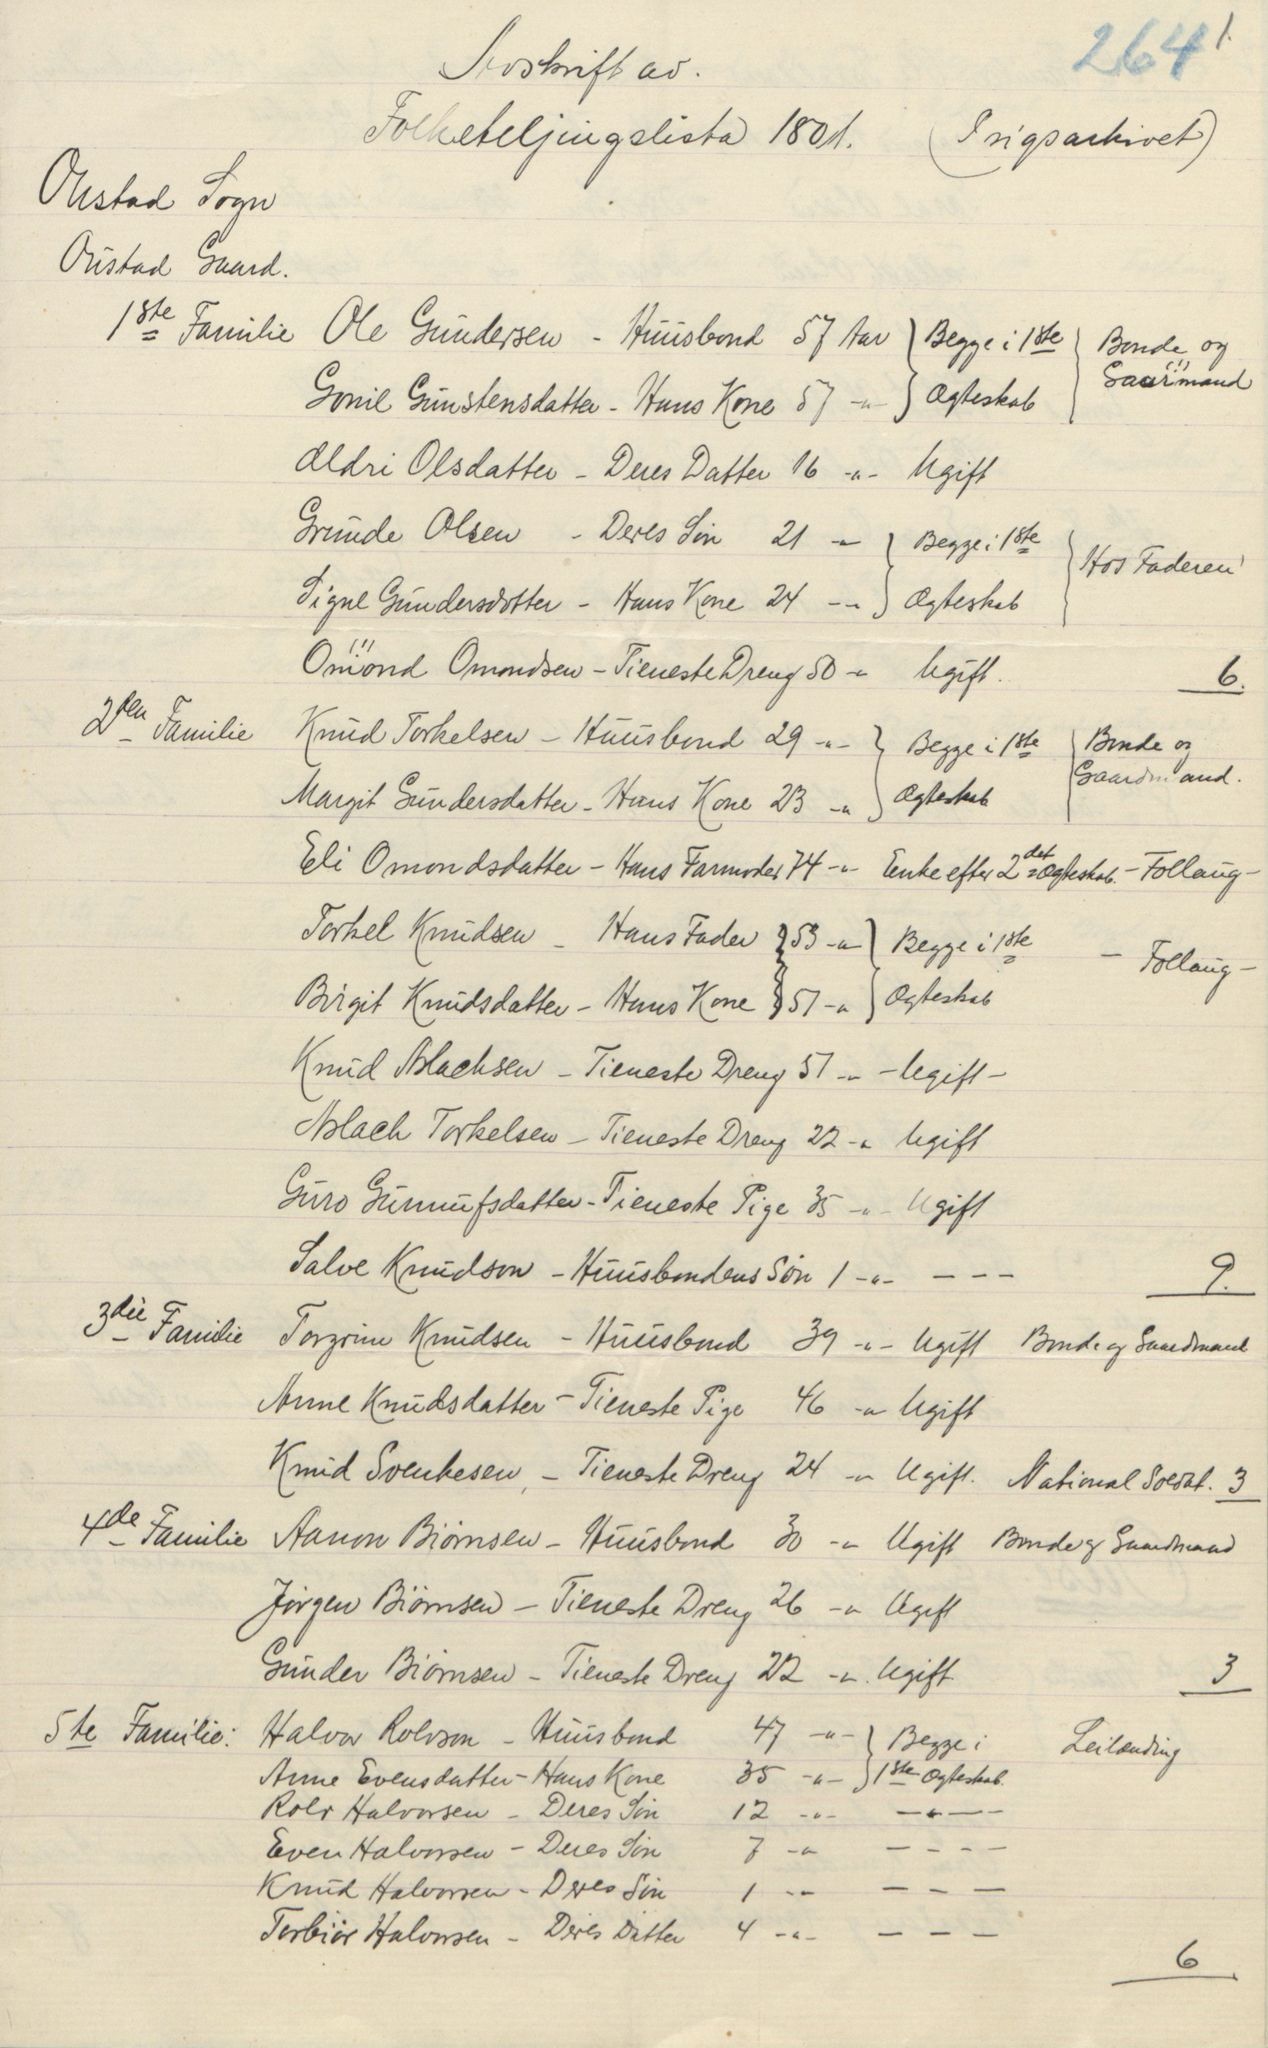 264 1.
Avskrift av.
Folketeljingslista 1801. (I rigsarkivet)
Oustad Sogn
Oustad Gaard.
1ste Familie Ole Gundersen - Huusbond 57 Aar } Begge i 1ste } Bonde og
Gonil Gunstensdatter - Hans Kone 57 -"- } Ægteskab Gaarmand
Aldri Olsdatter - Deres Datter 16 -"- Ugift
Grunde Olsen - Deres Søn 21 -"- } Begge i 1ste } Hos Faderen
Signe Gundersdotter - Hans Kone 24 -"- } Ægteskab
Omond Omondsen - Tieneste Dreng 50 -"- Ugift. 6.
2den Familie Knud Torkelsen - Huusbond 29 -"- } Begge i 1ste } Bonde og
Margit Gundersdatter - Hans Kone 23 -"- } Ægteskab Gaardmand.
Eli Omondsdatter - Hans Farmoder 74 -"- Enke efter 2det Ægteskab. - Follaug -
Torkel Knudsen - Hans Fader } 53 -"- } Begge i 1ste - Follaug -
Birgit Knudsdatter - Hans Kone } 57 -"- } Ægteskab
Knud Aslachsen - Tieneste Dreng 57 -"- - Ugift -
Aslach Torkelsen - Tieneste Dreng 22 -"- Ugift
Guro Gunnufsdatter - Tieneste Pige 35 -"- Ugift
Salve Knudson - Huusbondens Søn 1 -"- - - - 9.
3die Familie Torgrim Knudsen - Huusbond 39 -"- Ugift Bonde og Gaardmand
Anne Knudsdatter - Tieneste Pige 46 -"- Ugift
Knud Svenkesen - Tieneste Dreng 24 -"- Ugift. National Soldat. 3
4de Familie Aanon Biørnsen - Huusbond 30 -"- Ugift Bonde og Gaardmand
Jørgen Biørnsen - Tieneste Dreng 26 -"- Ugift
Gunder Biørnsen - Tieneste Dreng 22 -"- Ugift 3
5te Familie: Halvor Rolvson - Huusbond 47 -"- } Begge i Leilænding
Anne Evensdatter - Hans Kone 35 -"- } 1ste Ægteskab.
Rolv Halvorsen - Deres Søn 12 -"- -"-
Even Halvorsen - Deres Søn 7 -"- - - - -
Knud Halvorsen - Deres Søn 1 -"- - - -
Torbiør Halvorsen - Deres Datter 4 -"- - - -
6